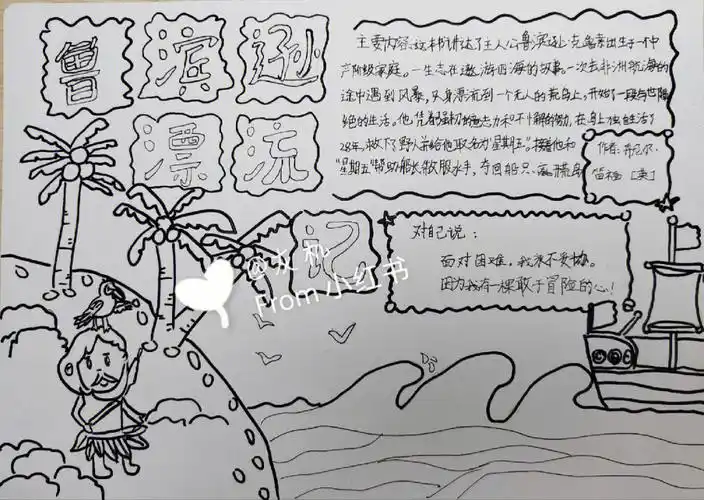 鲁滨逊
漂流
记
主要内容:这本书讲述了主人公鲁滨逊·克鲁索出生于一个中
产阶级家庭。一生志在遨游四海的故事。一次去非洲航海的
途中遇到风暴,只身漂流到一个无人的荒岛上,开始了一段与世隔
绝的生活。他凭着强韧的意志力和不懈的努力,在岛上独自生活了
28年,救下了野人并给他取名为“星期五”。接着他和
“星期五”帮助船长救服水手,夺回船只,离荒岛
作者:丹尼尔·
笛福 [英]
对自己说:
面对困难,我决不妥协。
因为我有一颗敢于冒险的心!
From 小红书